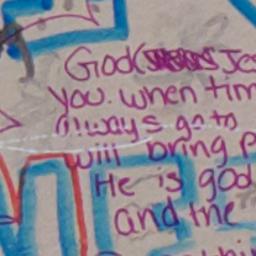 God(
you. when tim
always go to
will bring p
He is god
and the